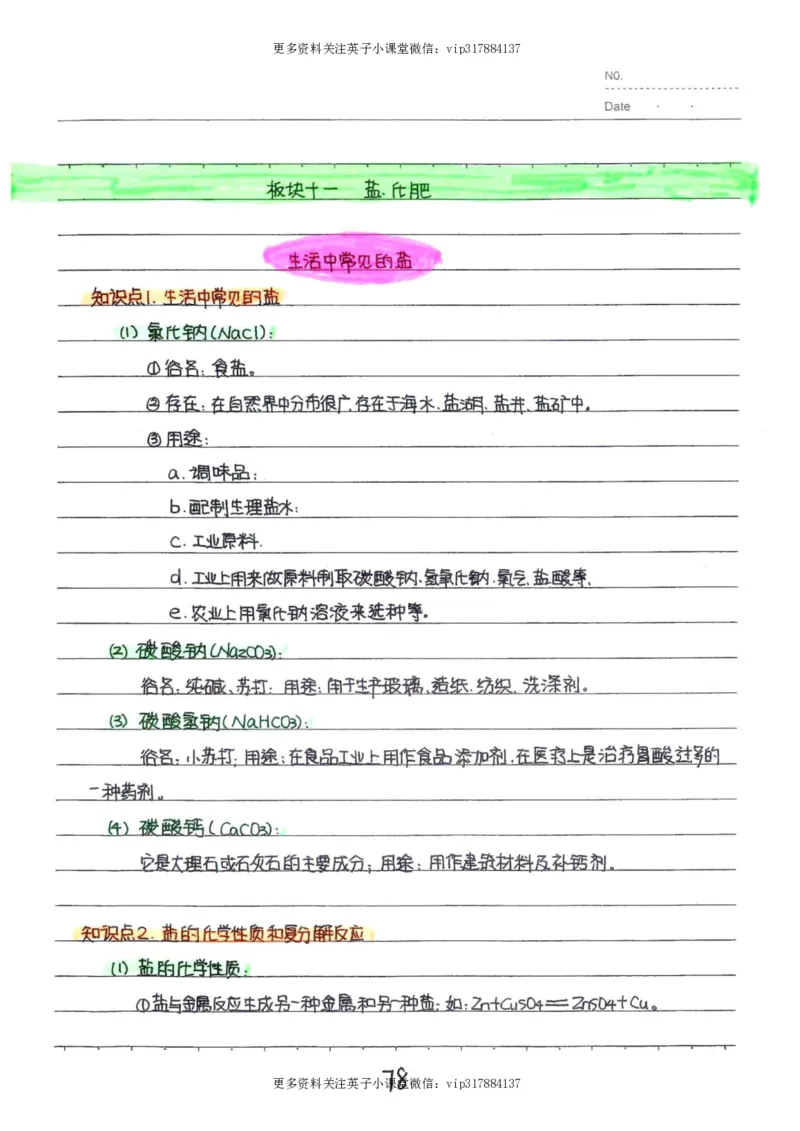 更多资料关注英子小课堂微信：vip317884137
NO.
Date · ·
板块十一 盐、化肥
生活中常见的盐
知识点1. 生活中常见的盐
(1) 氯化钠(NaCl)：
①俗名：食盐。
②存在：在自然界中分布很广,存在于海水、盐湖、盐井、盐矿中。
③用途：
a.调味品；
b.配制生理盐水；
c.工业原料.
d.工业上用来做原料制取碳酸钠、氢氧化钠、氯气、盐酸等、
e.农业上用氯化钠溶液来选种等。
(2) 碳酸钠(Na2CO3)：
俗名：纯碱、苏打；用途：用于生产玻璃、造纸、纺织、洗涤剂。
(3) 碳酸氢钠(NaHCO3)：
俗名：小苏打；用途：在食品工业上用作食品添加剂,在医疗上是治疗胃酸过多的
一种药剂。
(4) 碳酸钙(CaCO3)：
它是大理石或石灰石的主要成分；用途：用作建筑材料及补钙剂。
知识点2. 盐的化学性质和复分解反应
(1) 盐的化学性质：
①盐与金属反应生成另一种金属和另一种盐；如：Zn+CuSO4═ZnSO4+Cu。
78
更多资料关注英子小课堂微信：vip317884137